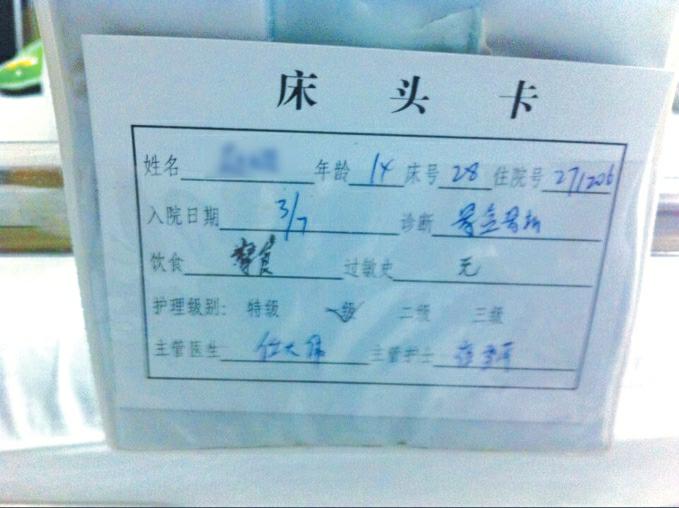 床头卡
姓名 年龄 14 床号 28 住院号 271206
入院日期 3/7 诊断 骨盆骨折
饮食 禁食 过敏史 无
护理级别: 特级 一级 二级 三级
主管医生 主管护士